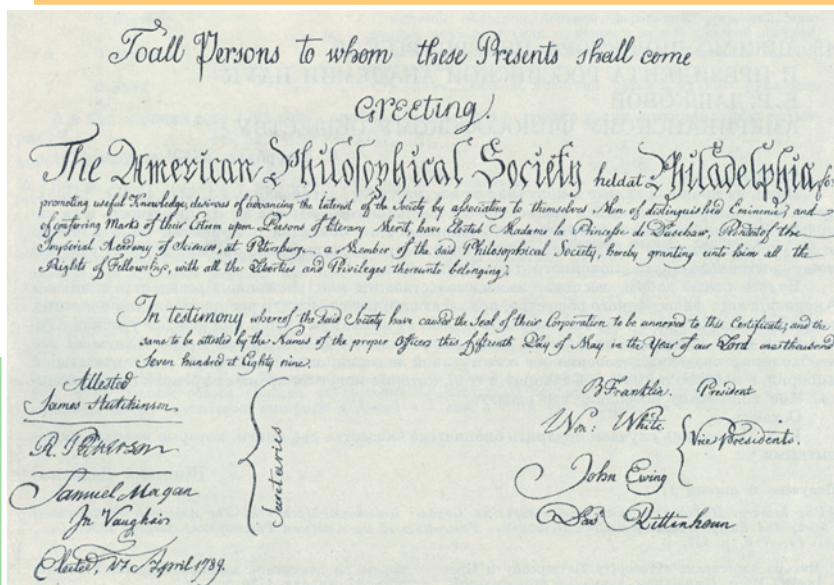 To all Persons to whom these Presents shall come
Greeting.
The American Philosophical Society held at Philadelphia, for
promoting useful Knowledge, desirous of advancing the Interest of the Society by associating to themselves Men of distinguished Eminence, and
of conferring Marks of their Esteem upon Persons of literary Merit, have Elected Madame la Princesse de President of the
Imperial Academy of Sciences, at Petersburg a Member of the said Philosophical Society, hereby granting unto him all the
Rights of Fellowship, with all the Liberties and Privileges thereunto belonging,
In testimony whereof the said Society have caused the Seal of their Corporation to be annexed to this Certificate, and the
same to be attested by the Names of the proper Officers this fifteenth Day of May in the Year of our Lord one thousand
Seven hundred at Eighty nine.
Attested
James Hutchinson
R. Patterson
Samuel Magan
Jn Vaughan
Secretaries
B Franklin. President
Wm: White
John Ewing
Dav Rittenhouse
Vice Presidents.
Elected, 17 April 1789.